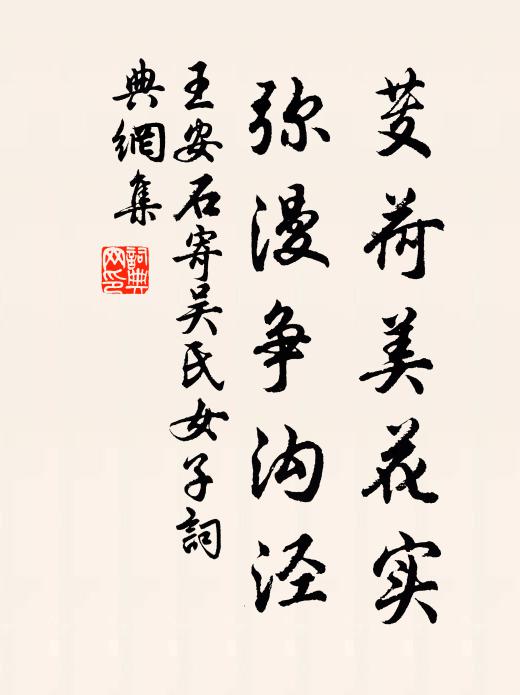 芰荷美花实
弥漫争沟泾
王安石寄吴氏女子詞
典網集
詞典
网印